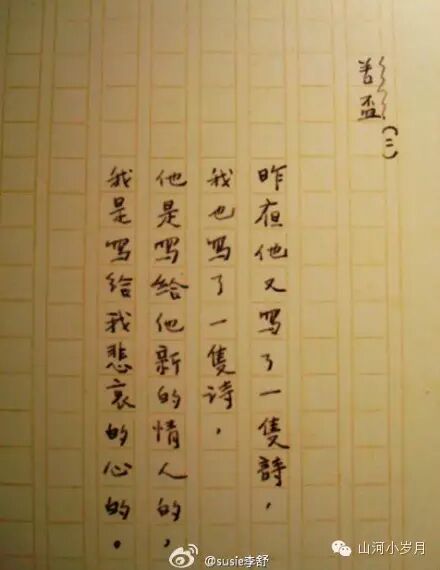 苦盃(二)
昨夜他又写了一隻詩，
我也写了一隻诗，
他是写給他新的情人的，
我是写給我悲哀的心的。
@susie李舒
山河小岁月